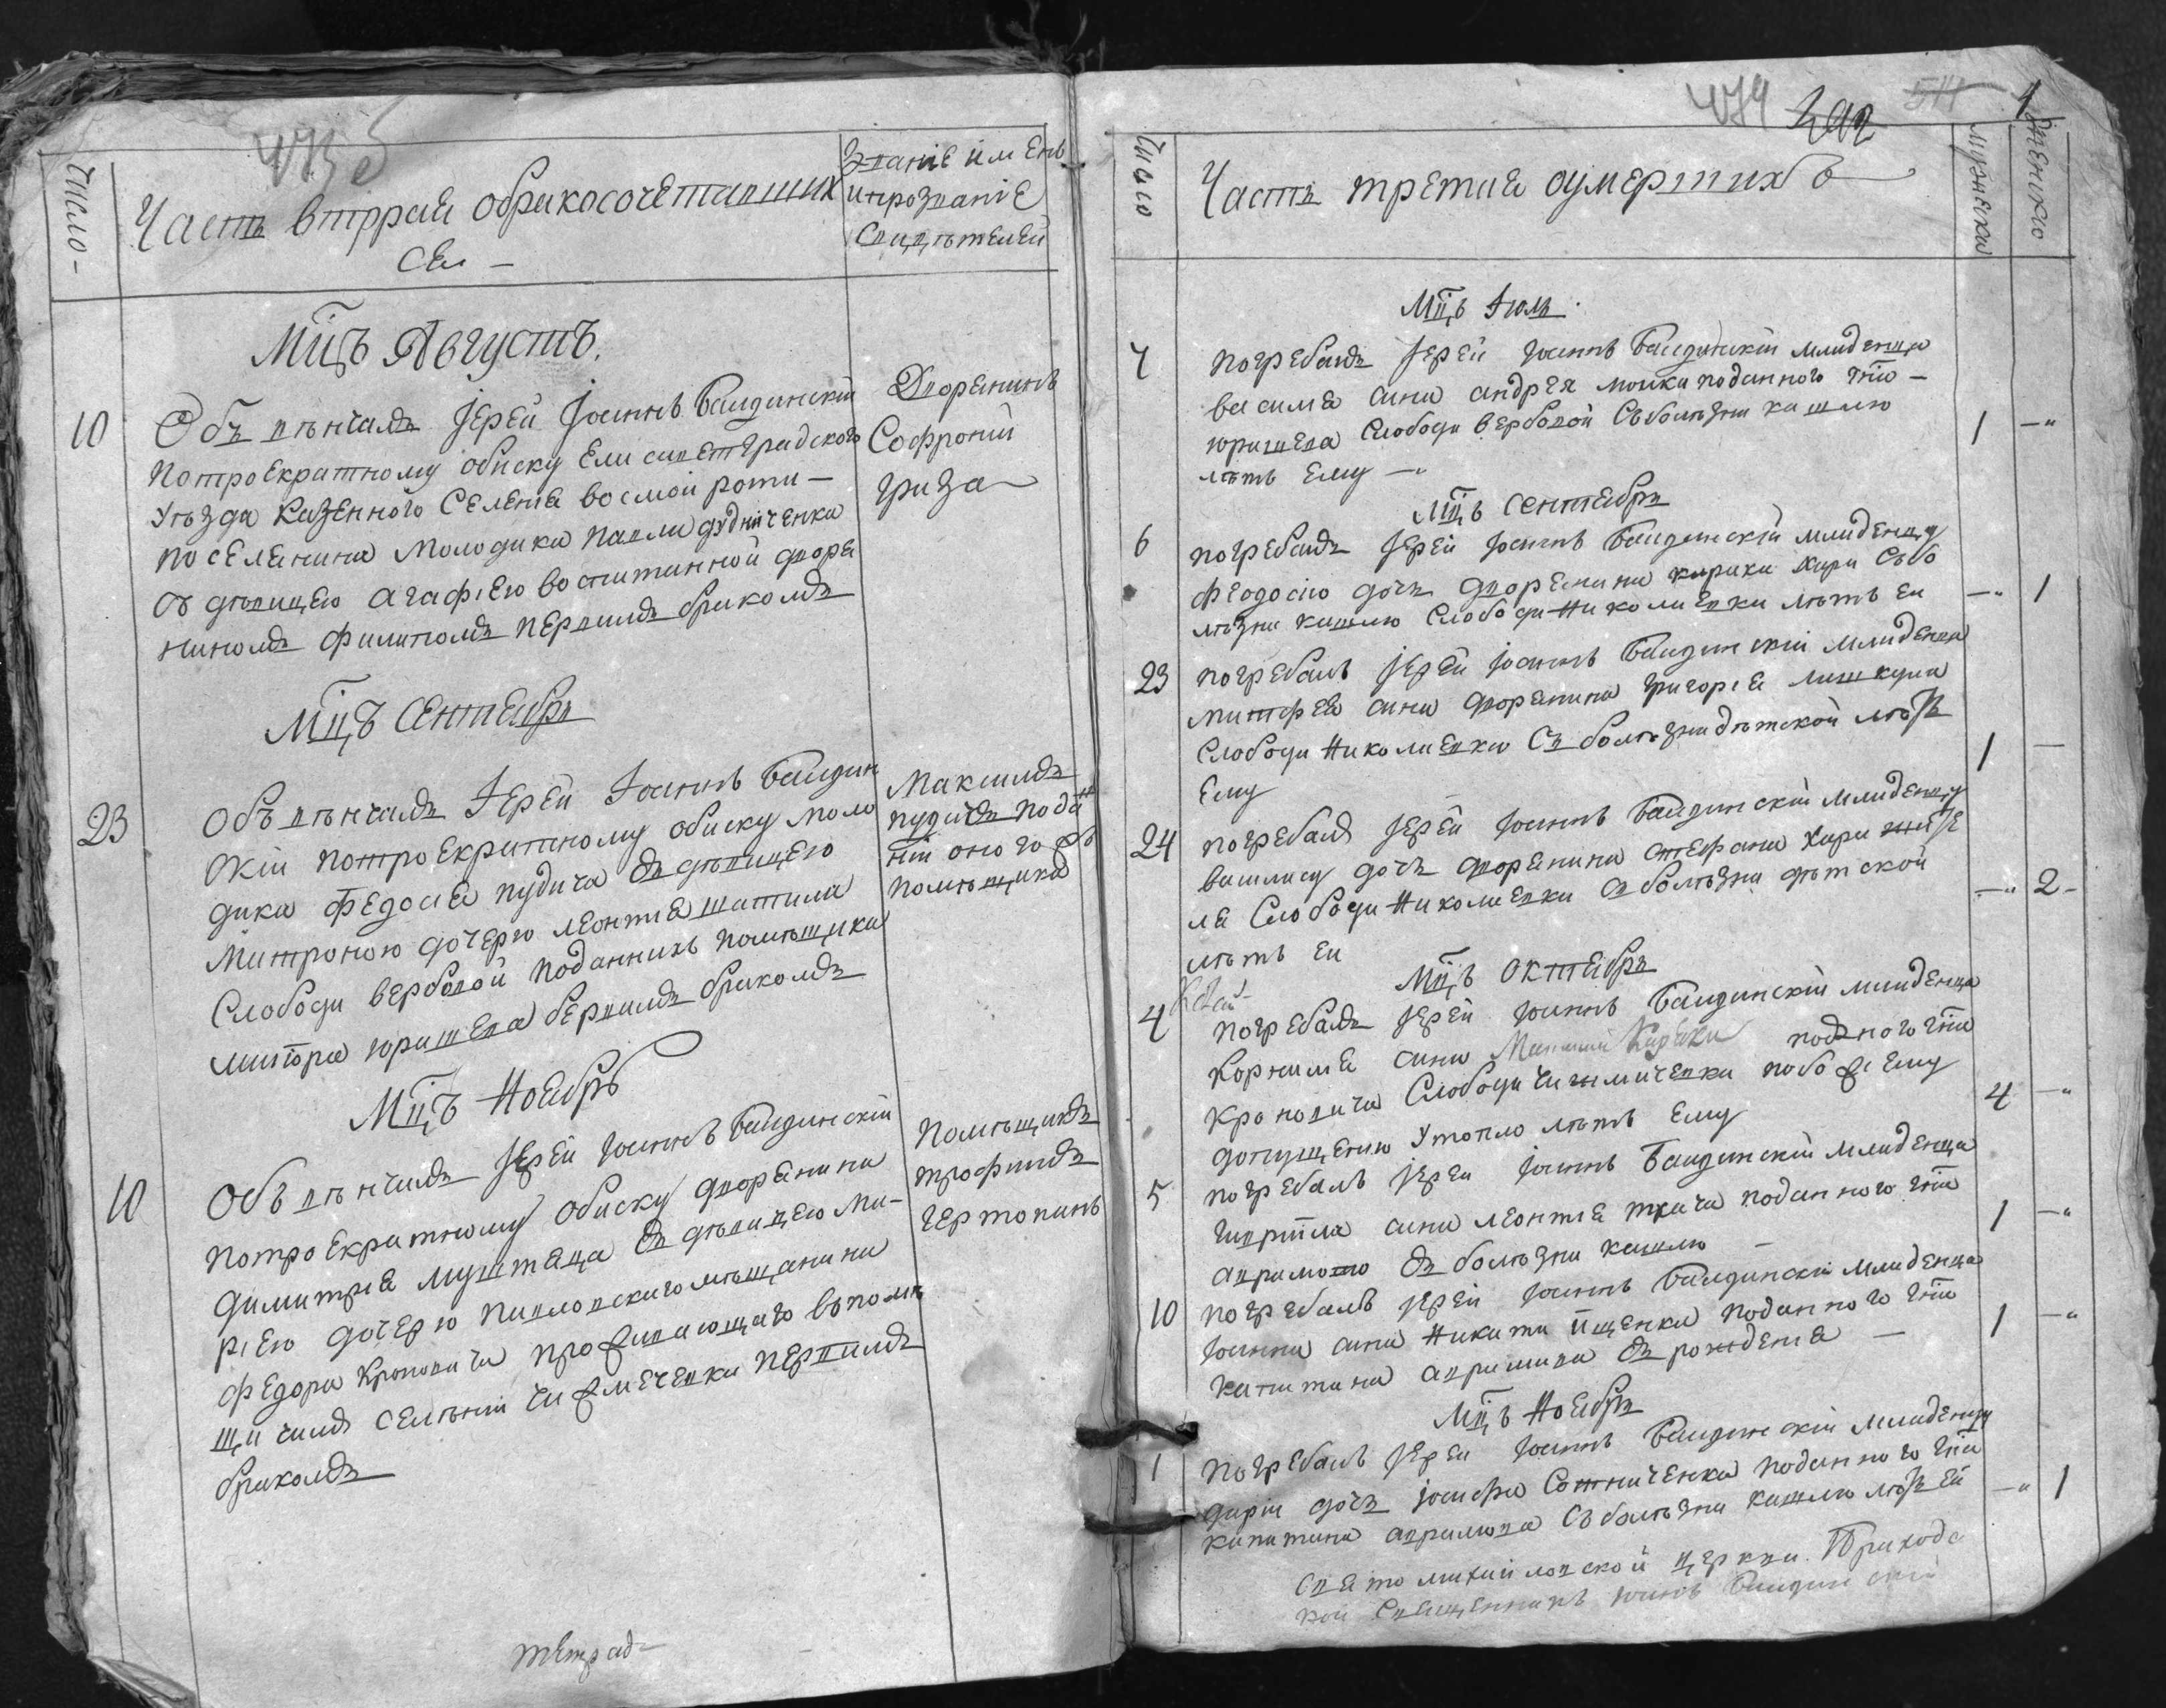 Число
Часть вторая обракосочетавших
ся
Званіе имень
ипрозваніе
Свидѣтелей
Мц̃ъ Августъ.
10
Объвѣнчалъ Іерей Іоаннъ Баидинскій
потроекратному обиску Елисаветградского
уѣзда Казенного Селенія восмой роти
поселянина молодика Павла дудниченка
съ дѣвицею агафіею воспитанной дворя
ниномъ филипомъ первимъ бракомъ
Дворянинъ
Софроній
грива
Мц̃ъ Сентябрь
23
Объвѣнчалъ Іерей Іоаннъ Баидин
скій потроекратному обиску моло
дика Федосія пудича съ дѣвицею
Матроною дочерю леонтія шатила
Слободи вербовой поданнихъ помѣщика
маіора юришева первимъ бракомъ
Максимъ
пудичъ подан
ній оного жъ
помѣщика
Мц̃ъ Ноябрь
10
Объвѣнчалъ Іерей Іоаннъ Баидинскій
потроекратному обиску дворянина
димитрія муштаца съ дѣвицею ма-
ріею дочерю павловскаго мѣщанина
федора Кроповича проживающаго впомѣ
щичимъ селѣніи чижмечевки первимъ
бракомъ
Помѣщикъ
трофимъ
чертопинъ
тетрад
Число
Часть третія оумершихъ
мужеска
женско
Мц̃ъ Іюль
4
погребалъ Іерей Іоаннъ Баидинскій младенца
василія сина андрея моика поданного гна
юришева Слободи вербовой Съболѣзни кашлю
лѣтъ ему
1
Мц̃ъ Сентябрь
6
погребалъ Іерей Іоаннъ Баидинскій младенцу
феодосію дочь дворянина кирика хари Събо
лѣзни кашлю Слободи Николаевки лѣтъ еи
1
23
погребалъ Іерей Іоаннъ Баидинскій младенца
матфея сина дворянина григорія лашкула
Слободи Николаевки Съ болѣзни дѣтской лѣтъ
ему
1
24
погребалъ Іерей Іоаннъ Баидинскій младенцу
василису дочь дворянина стефана хари жите
ля Слободи Николаевки съ болѣзни дѣтской
лѣтъ еи
2
Мц̃ъ Октябрь
4
погребалъ Іерей Іоаннъ Баидинскій младенца
Корнилія сина поданого гна
Кроповича Слободи чижмичевки побожіему
допущенію утопло лѣтъ ему
4
5
погребалъ Іерей Іоаннъ Баидинскій младенца
гавріила сина леонтія ткача поданного гна
аврамово съ болѣзни кашлю
1
10
погребалъ Іерей Іоаннъ Баидинскій младенца
Іоанна сина Никити йщенка поданного гна
капитана аврамова съ рожденія
1
Мц̃ъ Ноябрь
1
погребалъ Іерей Іоаннъ Баидинскій младенцу
дарію дочь іосифа Сотниченка поданного гна
капитана аврамова Съболѣзни кашлю лѣтъ ей
1
Свято михайловской церкви Приходс
кой Священникъ Іоаннъ Баидинскій